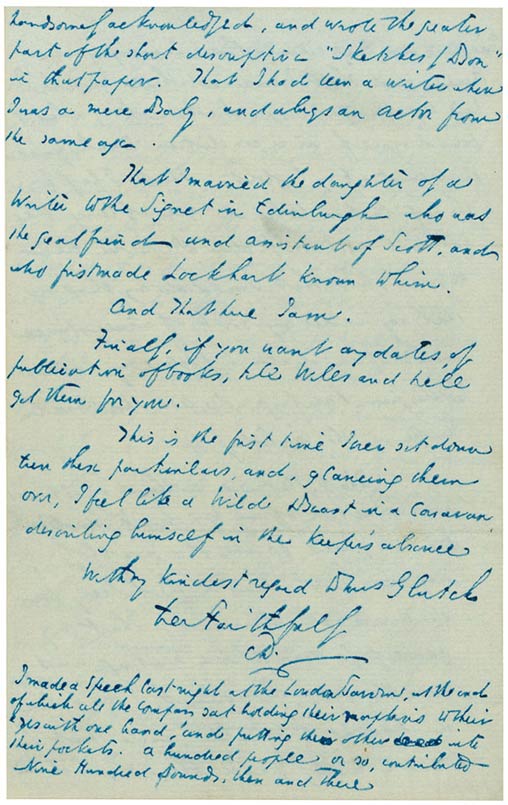 handsomely acknowledged, and wrote the greater
part of the short descriptive "Sketches by Boz"
in that paper. That I had been a writer when
I was a mere Baby, and always an Actor from
the same age.
That I married the daughter of a
Writer to the Signet in Edinburgh who was
the great friend and assistant of Scott, and
who first made Lockhart known to him.
And that here I am.
Finally, if you want any dates of
publication of books, tell Wills and he'll
get them for you.
This is the first time I ever set down
even these particulars, and, glancing them
over, I feel like a Wild Beast in a Caravan
describing himself in the keeper's absence
With my kindest regard to Mrs
Ever Faithfully
CD.
I made a Speech last night at the London Tavern, at the end
of which all the company sat holding their napkins to their
eyes with one hand, and putting the other into
their pockets. A hundred people or so, contributed
Nine Hundred Pounds then and there